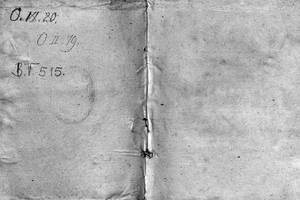 O. 17. 20.
O. II. 19.
B. F. 515.